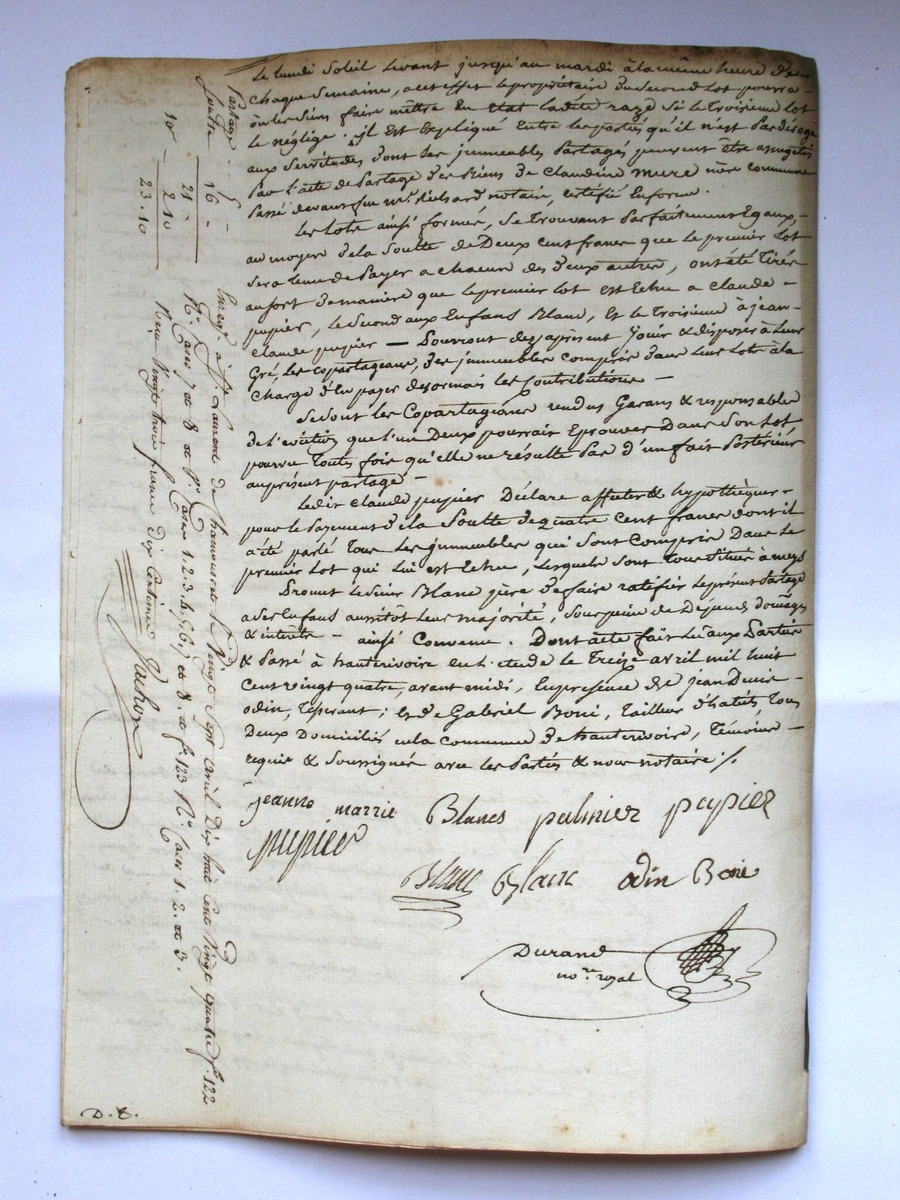 Le lundi Soleil levant jusqu'au mardi à la même heure de
chaque Semaine, a cet effet le propriétaire du Second lot pourra
ou les Siens faire mêttre en état ladite raze Si le Troisieme lot
le néglige. il Est Expliqué Entre les parties qu'il n'est Pas dérogé
aux Servitudes dont les jmmeubles Partagés peuvent être assujetis
Par l'acte de Partage des Biens de Claudine mure mère commune
Passé devant feu me. Richard notaire, certifié En forme.
Les lots ainsi formés, Se Trouvant Parfaitement Egaux,
au moyen de la Soulte de Deux cent francs que le premier Lot
Sera tenu de Payer a chacun des deux autres, ont été Tirés
au fort de manière que le premier lot est Echu a claude
pupier, le Second aux Enfans Blanc, Et le Troisieme à jean
claude pupier — Pourront des aprésent Jouir & disposer a Leur
Gré, Les copartageans, des jmmeubles compris dans leur Lots à la
charge d'en payer desormais les Contributions —
Se Sont les Copartageans rendus Garans & responsables
de l'éviction que l'un Deux pourrait Eprouver Dans Son Lot,
pourvu Toutes fois qu'elle ne résulte Pas d'un fait Postérieur
au présent partage —
Ledit claude pupier Déclare affecter & hypothèquer
pour le Payement de la Soulte de quatre cent francs dont il
a été parlé Tous Les jmmeubles qui Sont Compris Dans Le
premier Lot qui Lui est Echu, Lesquels Sont Tous Situés à meys
Promet le Sieur Blanc père de faire ratifier le présent Partage
a Ses Enfans aussitôt leur majorité, Sous peine de Dépens, Domages
& intérêts — ainsi Convenu. Dont acte fait Lu aux Parties
& Passé à hauterivoire en L'étude le Treize avril mil huit
Cent vingt quatre, avant midi, En présence de jean Denis
odin, Tisserant; Et de Gabriel Boni, Tailleur d'habits, Tous
Deux Domiciliés en la Commune de hauterivoire, Témoins
requis & Soussignés avec les Parties & nous notaire ./.
jeanne marrie Blancs palmier pupier
pupier
Blanc Blanc odin Boni
Durand
nore. royal
Partage 5 -
Soulte 16 -
21 -
10 2 10
23.10
Enregé. à St. Laurent de Chamousset le Vingt Sept avril Dix huit Cent Vingt quatre fo. 122
Ro. Cases 7 et 8 et Vo. Cases 1.2.3.4.5.6.7 et 8. et fo. 123 Ro. Cases 1. 2. et 3.
Reçu Vingt trois francs Dix Centimes
D. E.